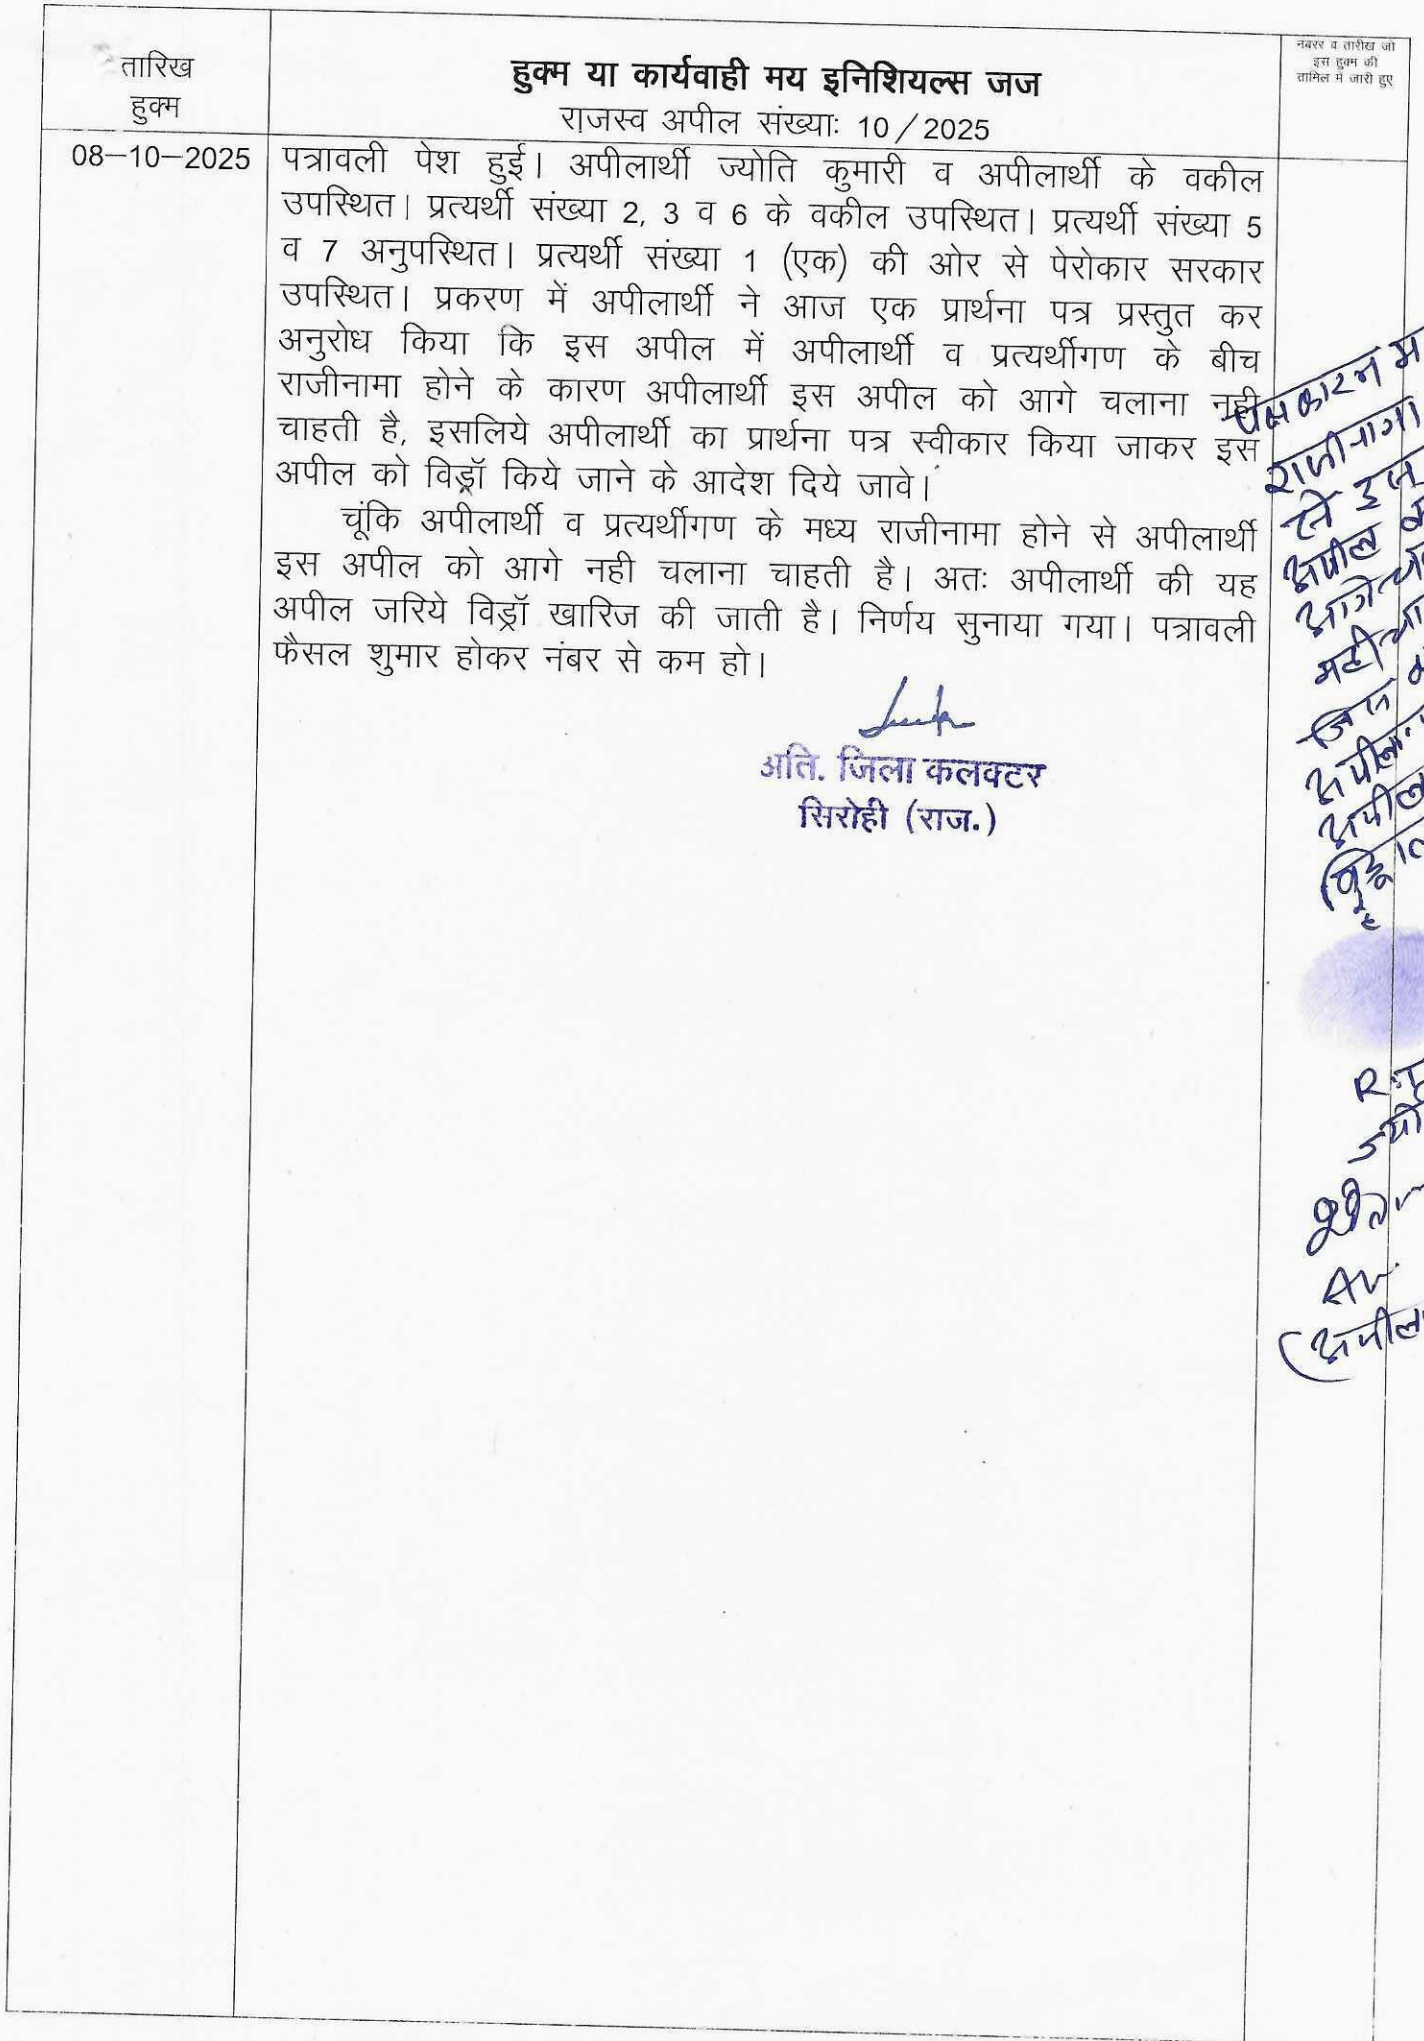 तारिख
हुक्म
हुक्म या कार्यवाही मय इनिशियल्स जज
राजस्व अपील संख्याः 10/2025
नंबर व तारीख जो
इस हुक्म की
तामिल में जारी हुए
08-10-2025
पत्रावली पेश हुई। अपीलार्थी ज्योति कुमारी व अपीलार्थी के वकील
उपस्थित। प्रत्यर्थी संख्या 2, 3 व 6 के वकील उपस्थित। प्रत्यर्थी संख्या 5
व 7 अनुपस्थित। प्रत्यर्थी संख्या 1 (एक) की ओर से पेरोकार सरकार
उपस्थित। प्रकरण में अपीलार्थी ने आज एक प्रार्थना पत्र प्रस्तुत कर
अनुरोध किया कि इस अपील में अपीलार्थी व प्रत्यर्थीगण के बीच
राजीनामा होने के कारण अपीलार्थी इस अपील को आगे चलाना नही
चाहती है, इसलिये अपीलार्थी का प्रार्थना पत्र स्वीकार किया जाकर इस
अपील को विड्रॉ किये जाने के आदेश दिये जावे।
चूंकि अपीलार्थी व प्रत्यर्थीगण के मध्य राजीनामा होने से अपीलार्थी
इस अपील को आगे नही चलाना चाहती है। अतः अपीलार्थी की यह
अपील जरिये विड्रॉ खारिज की जाती है। निर्णय सुनाया गया। पत्रावली
फैसल शुमार होकर नंबर से कम हो।
अति. जिला कलक्टर
सिरोही (राज.)
राजीनामा
अपील